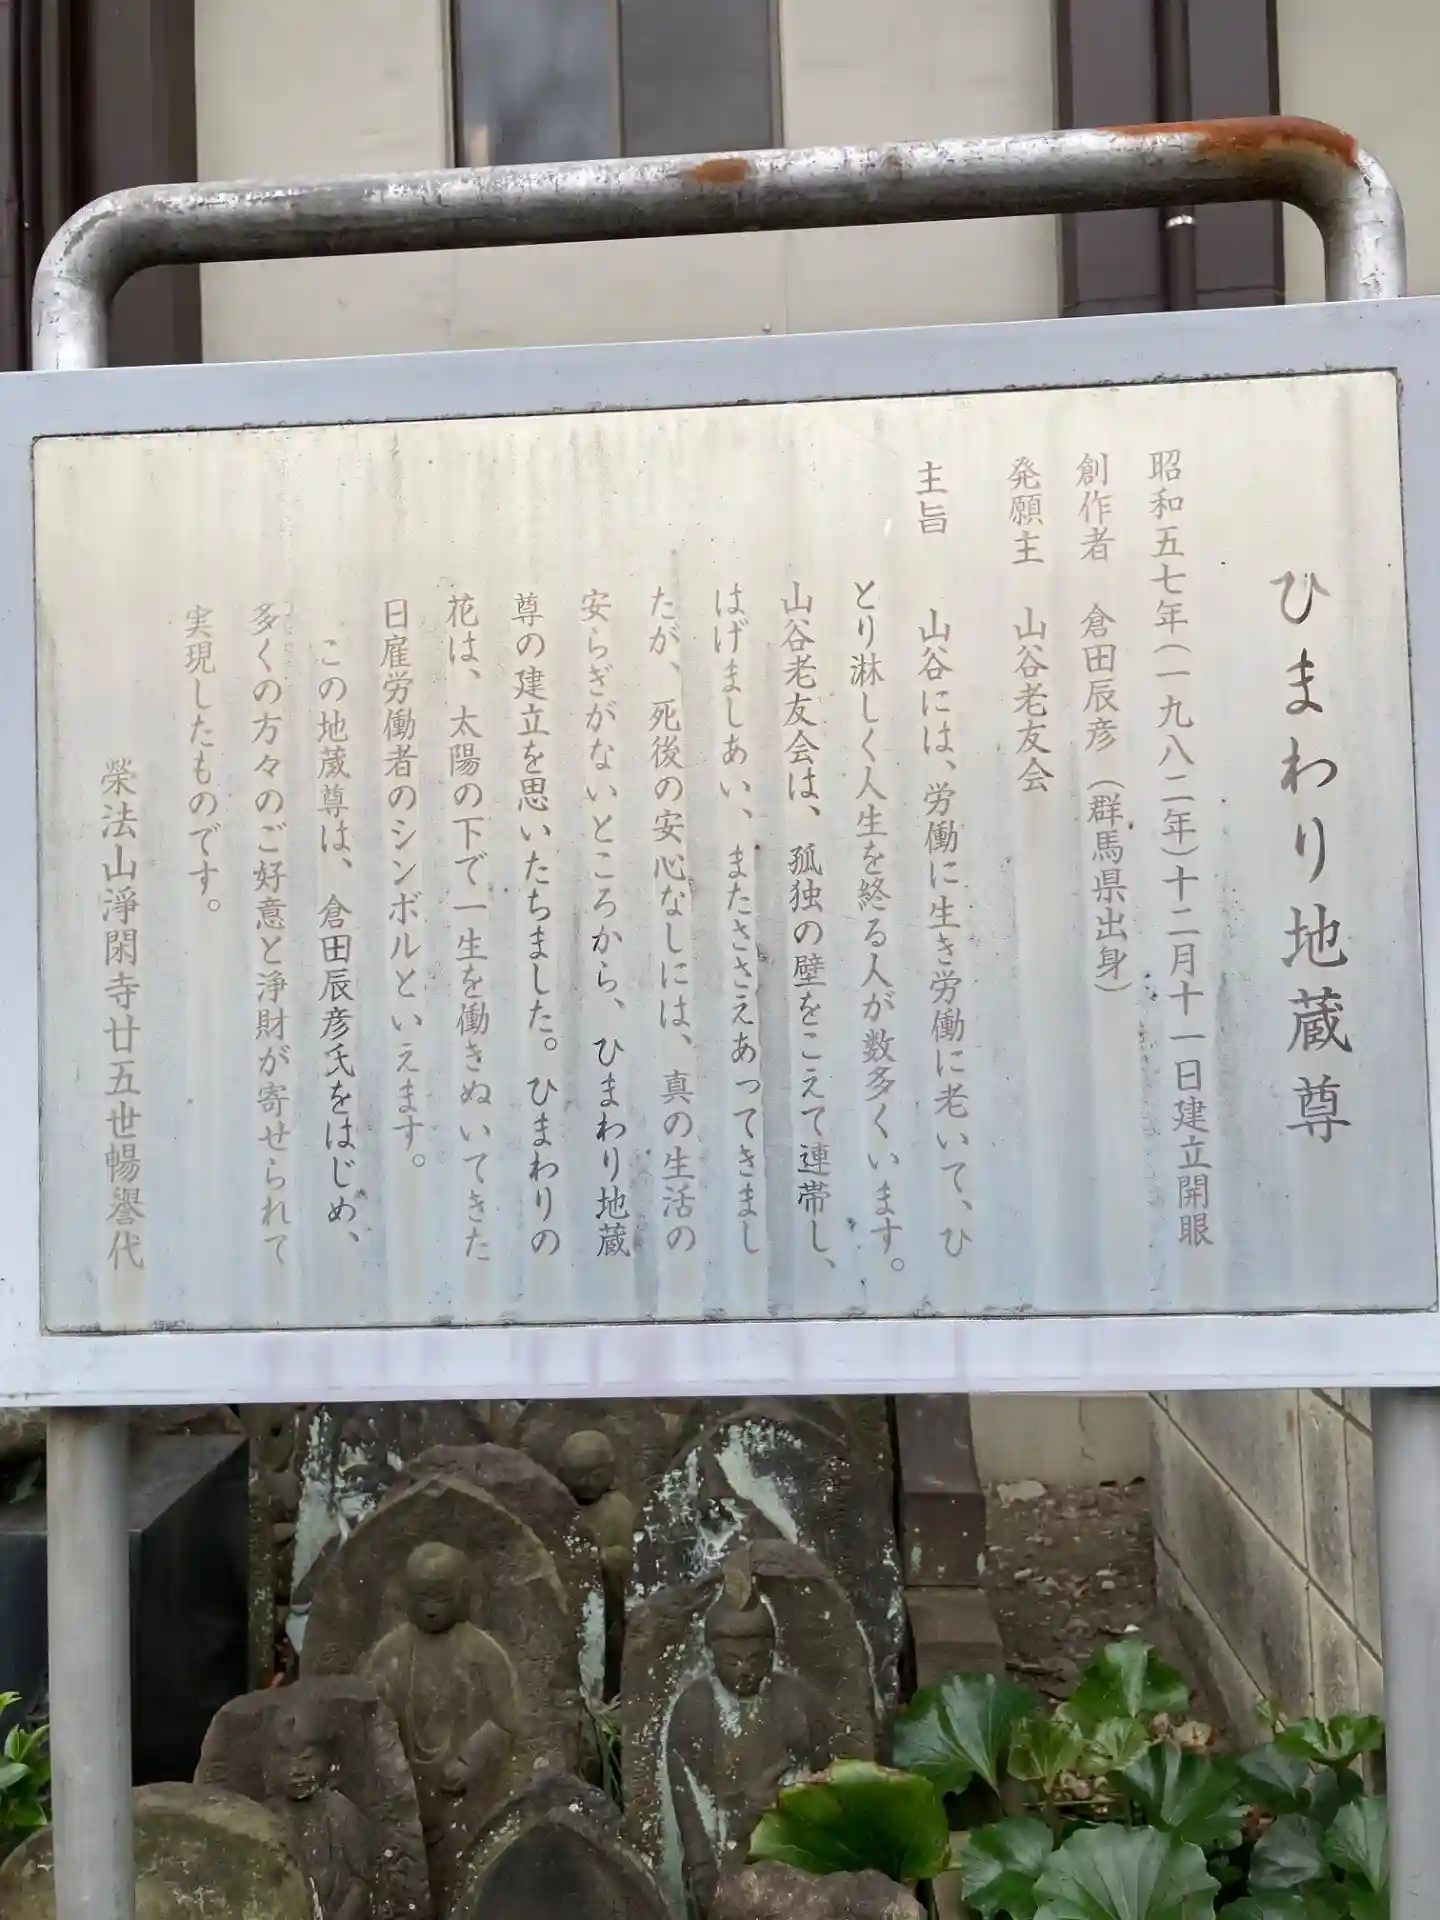 ひまわり地蔵尊
昭和五七年(一九八二年)十二月十一日建立開眼
創作者 倉田辰彦(群馬県出身)
発願主 山谷老友会
主旨 山谷には、労働に生き労働に老いて、ひ
とり淋しく人生を終る人が数多くいます。
山谷老友会は、孤独の壁をこえて連帯し、
はげましあい、またささえあってきまし
たが、死後の安心なしには、真の生活の
安らぎがないところから、ひまわり地蔵
尊の建立を思いたちました。ひまわりの
花は、太陽の下で一生を働きぬいてきた
日雇労働者のシンボルといえます。
この地蔵尊は、倉田辰彦氏をはじめ、
多くの方々のご好意と浄財が寄せられて
実現したものです。
榮法山淨閑寺廿五世暢譽代